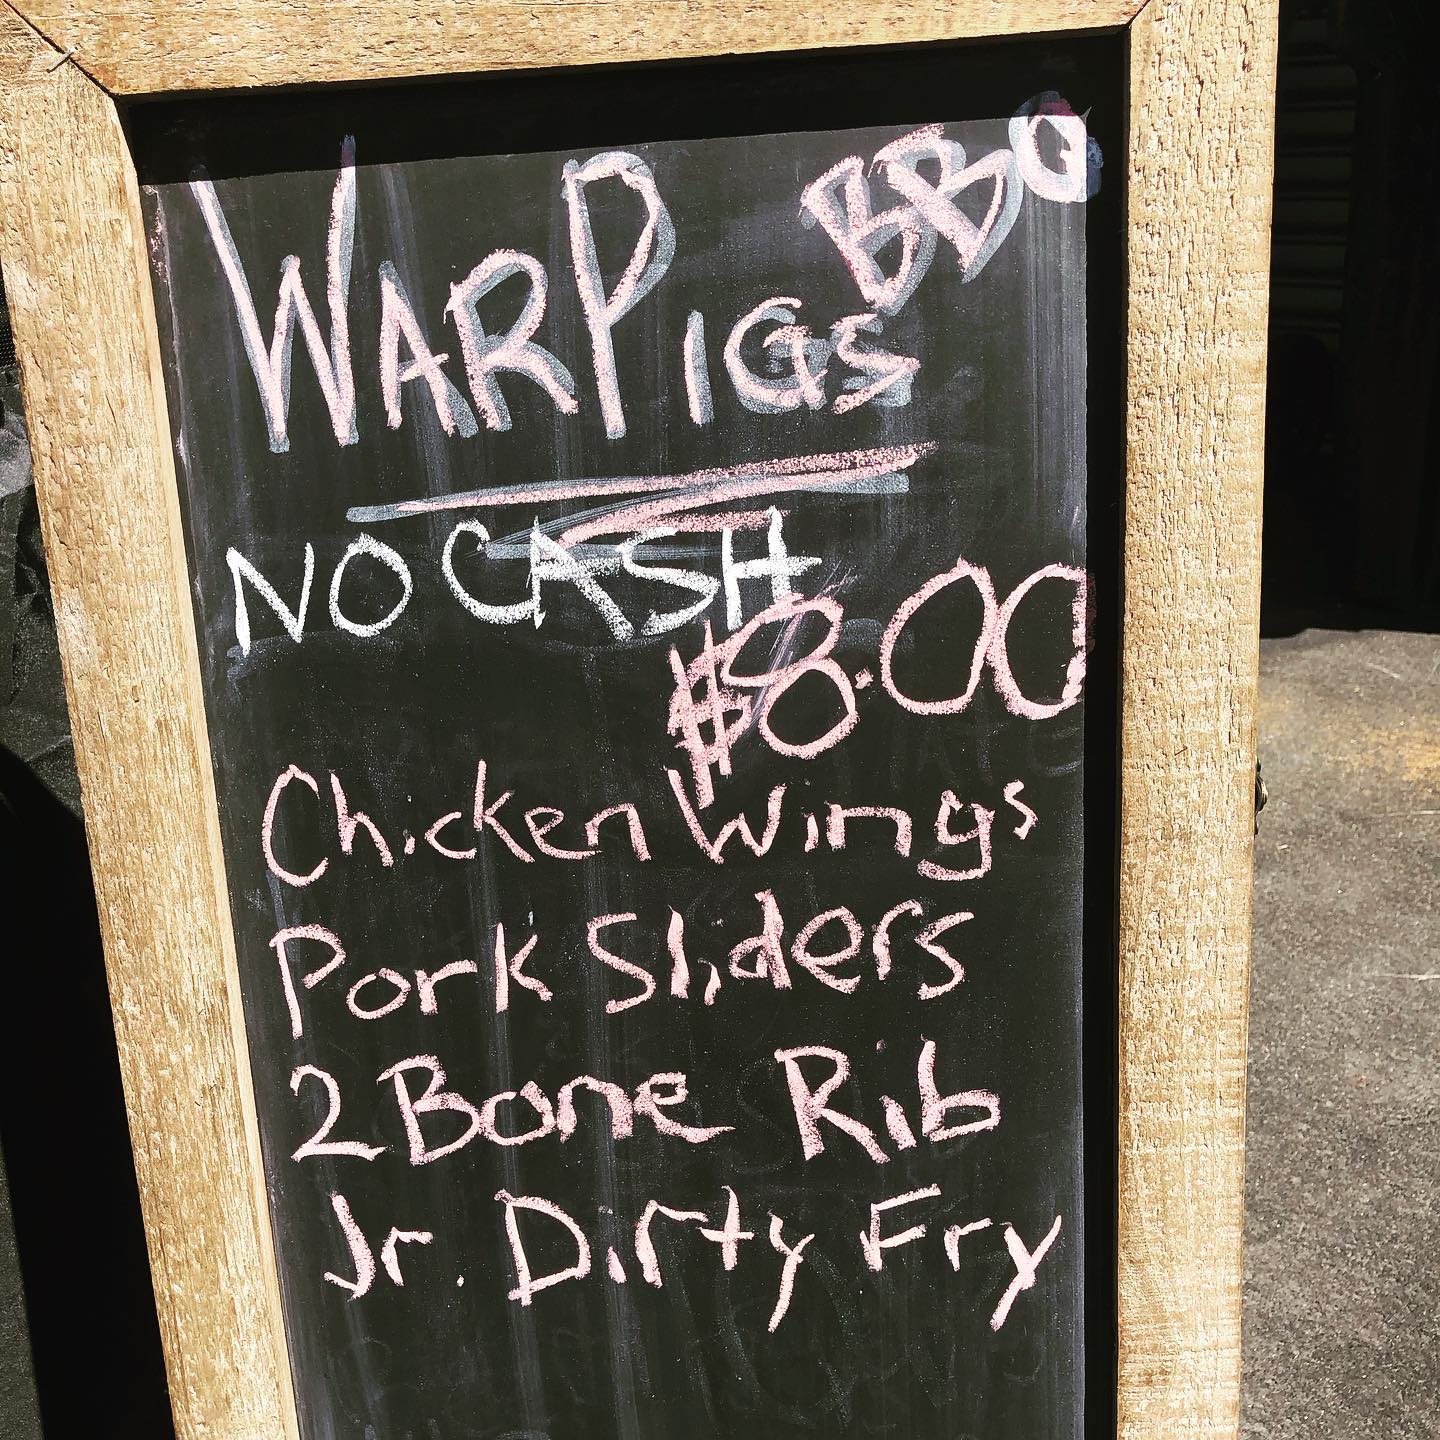 WARPIGS BBQ
NO CASH
$8.00
Chicken Wings
Pork Sliders
2 Bone Rib
Jr. Dirty Fry